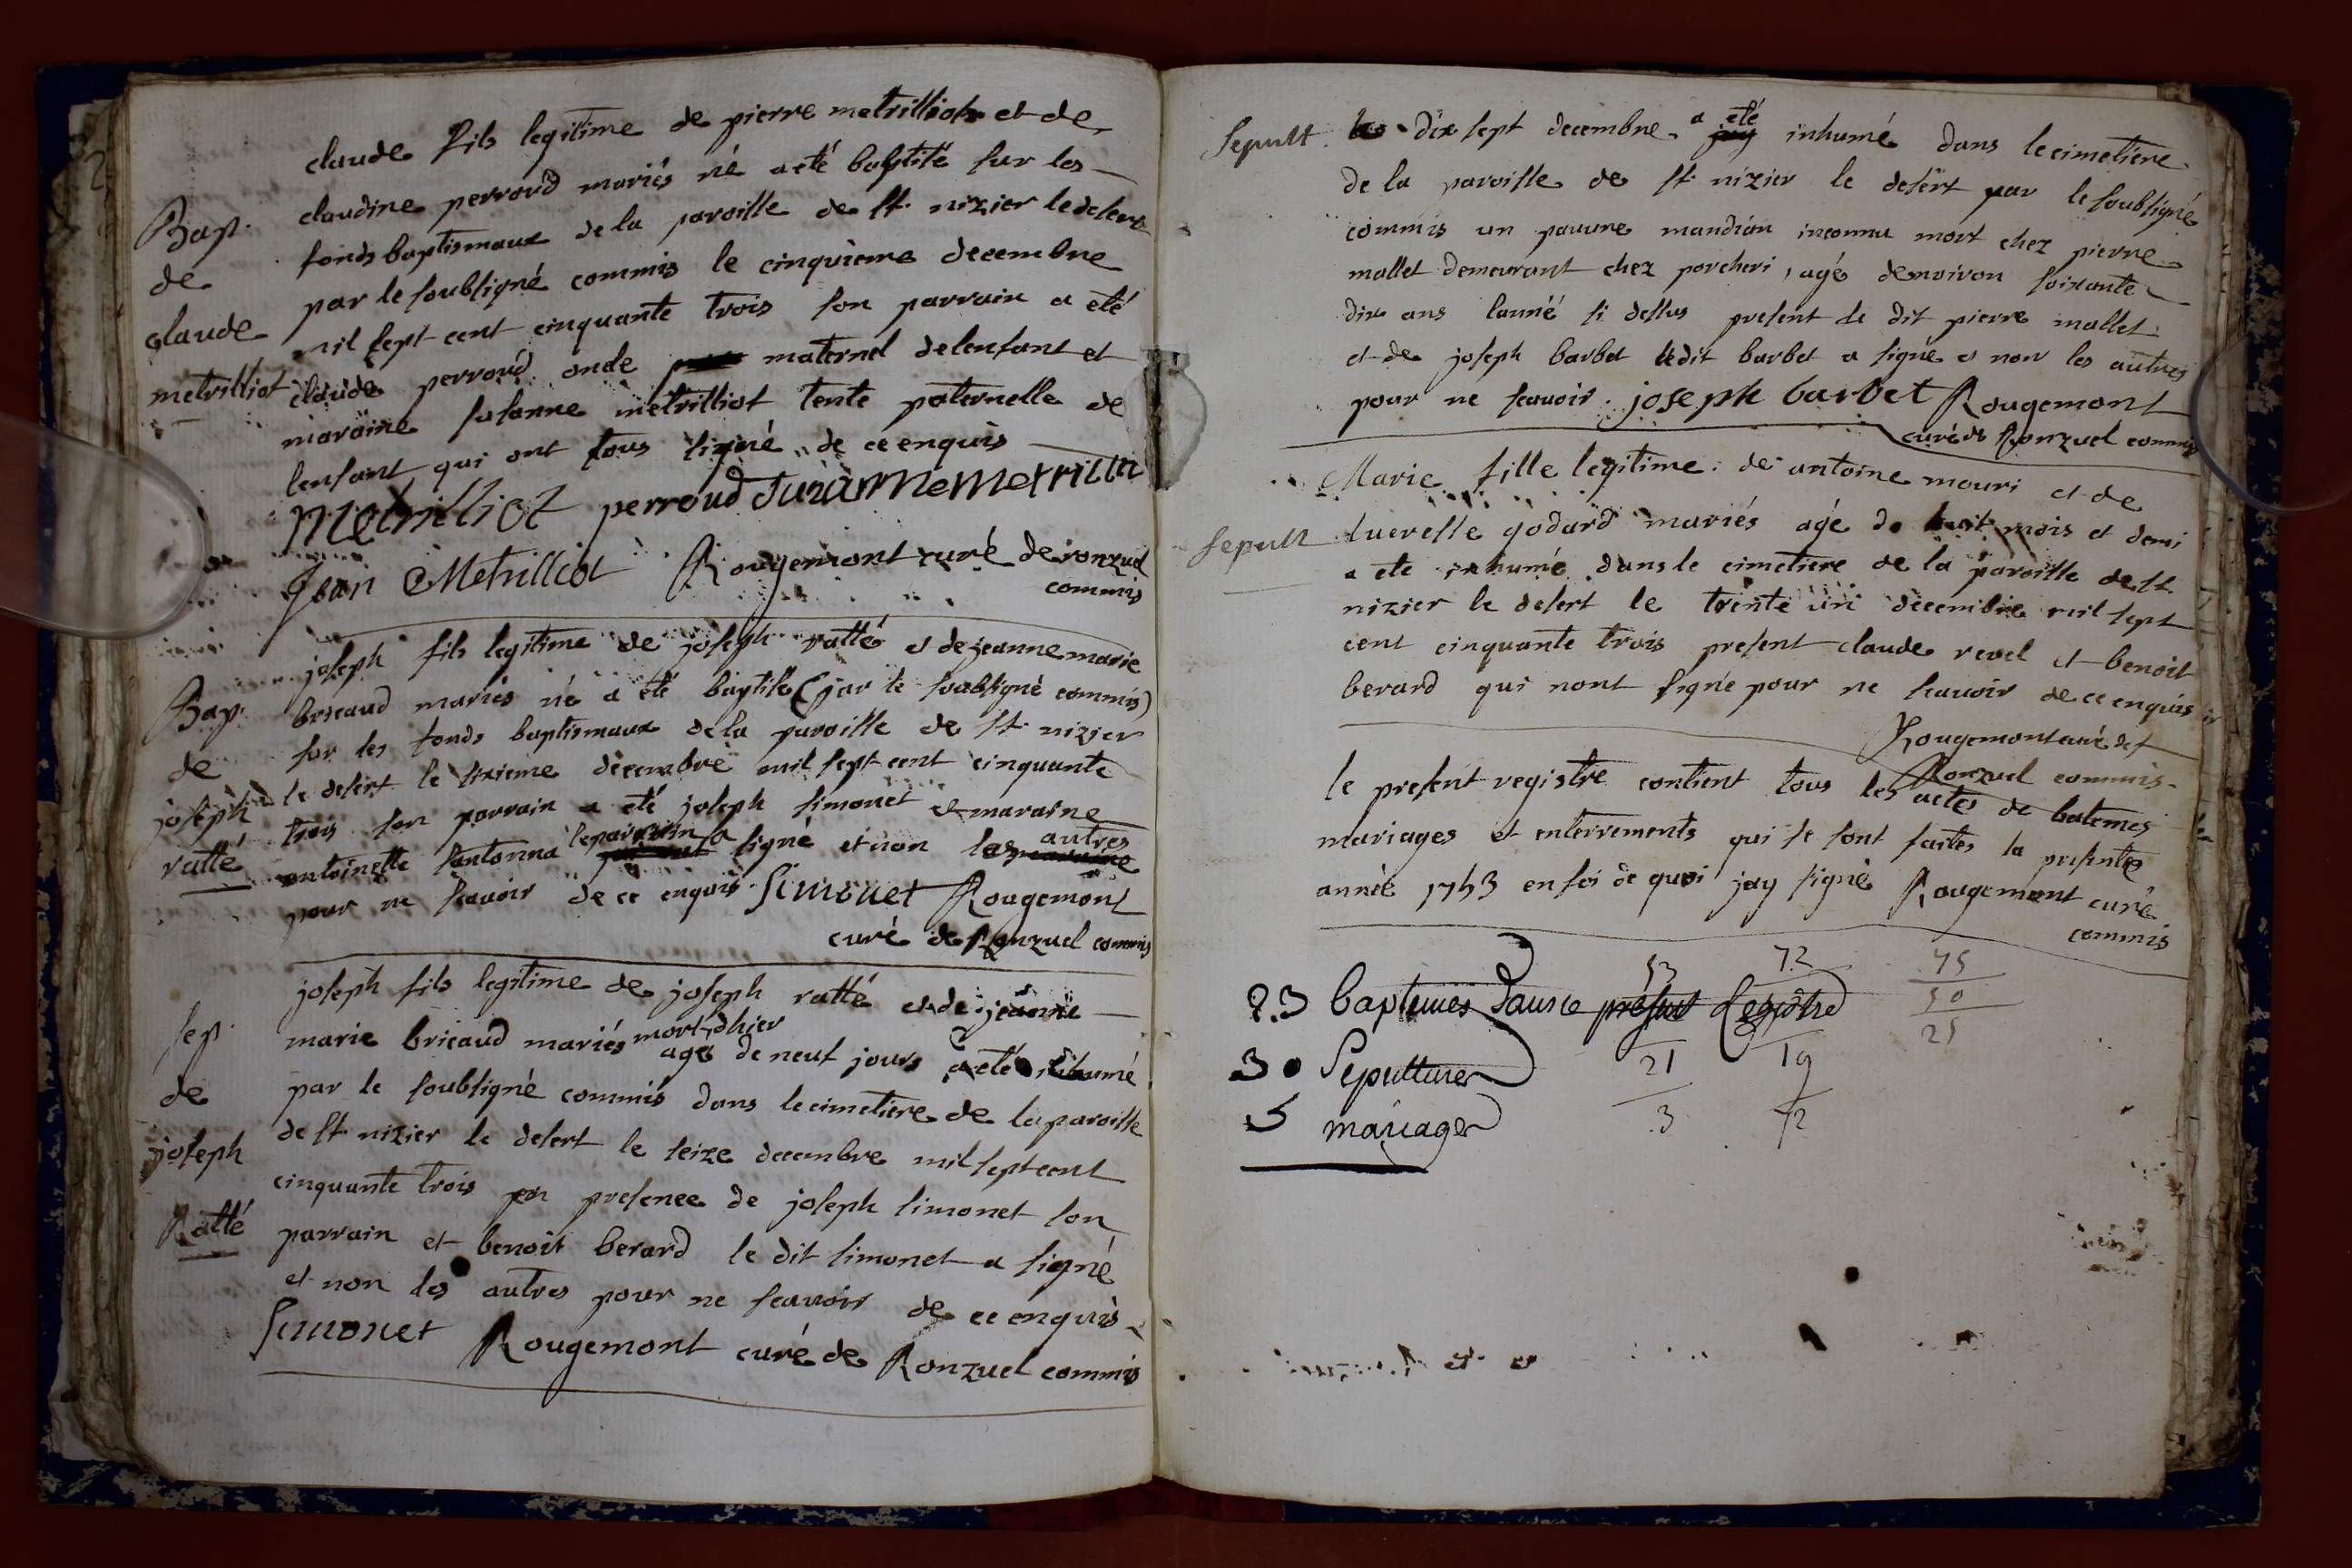 claude fils legitime de pierre metrilliot et de
claudine perroud mariés né a eté baptisé sur les
Bap.
fonds baptismaux de la paroisse de st. nizier le desert
de
par le soubsigné commis le cinquieme decembre
claude
mil sept cent cinquante trois son parrain a eté
metrilliot
claude perroud oncle maternel de lenfant et
maraine susanne metrilliot tente paternelle de
lenfant qui ont tous signé de ce enquis
Metrilliot perroud
Jean Metrilliot Rougemont curé de ronzuel
commis
joseph fils legitime de joseph ratté et de jeanne marie
Bap.
bricaud mariés né a été baptisé (par le soubsigné commis)
de
sur les fonds baptismaux de la paroisse de st. nizier
joseph
le desert le sixieme decembre mil sept cent cinquante
ratté
trois son parrain a eté joseph simonet et maraine
antoinette leparrain a signé et non les autres
pour ne scavoir de ce enquis Simonet Rougemont
curé de Ronzuel commis
joseph fils legitime de joseph ratté et de jeanne
sep.
marie bricaud mariés mort dhier agé de neuf jours a eté inhumé
de
par le soubsigné commis dans le cimetiere de la paroisse
joseph
de st nizier le desert le seize decembre mil sept cent
Ratté
cinquante trois en presence de joseph simonet son
parrain et benoit berard le dit simonet a signé
et non les autres pour ne scavoir de ce enquis
Simonet Rougemont curé de Ronzuel commis
Sepult. dix sept decembre a eté inhumé dans le cimetiere
de la paroisse de st nizier le desert par le soubsigné
commis un pauvre mandian inconnu mort chez pierre
mallet demeurant chez porcheri, agé denviron soixante
dix ans lanné si dessus present le dit pierre mallet
et de joseph barbet ledit barbet a signé et non les autres
pour ne scavoir. joseph barbet Rougemont
curé de Ronzuel commis
Marie fille legitime de antoine mouri et de
sepult
godard mariés agé de huit mois et demi
a ete inhumé dans le cimetiere de la paroisse de st.
nizier le desert le trente un decembre mil sept
cent cinquante trois present claude revel et benoit
berard qui nont signé pour ne scavoir de ce enquis
Rougemont curé de
Ronzuel commis
le present registre contient tous les actes de batemes
mariages et enterrements qui se sont faites la presente
année 1753 en foi de quoi jay signé Rougemont curé
commis
53 72 75
23 baptemes dans ce présent Registre 50
25
30 Sepultures 21 19
5 mariages 3 72